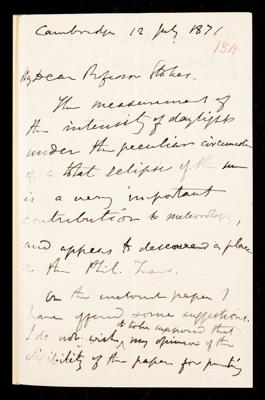 Cambridge 12 July 1871
134
My Dear Professor Stokes.
The measurement of
the intensity of daylight
under the peculiar circumstances
of a total eclipse of the sun
is a very important
contribution to meteorology,
and appears to deserve a place
in the Phil. Trans.
On the enclosed paper I
have offered some suggestions.
I do not wish it to be supposed that
my opinion of the
eligibility of the paper for printing